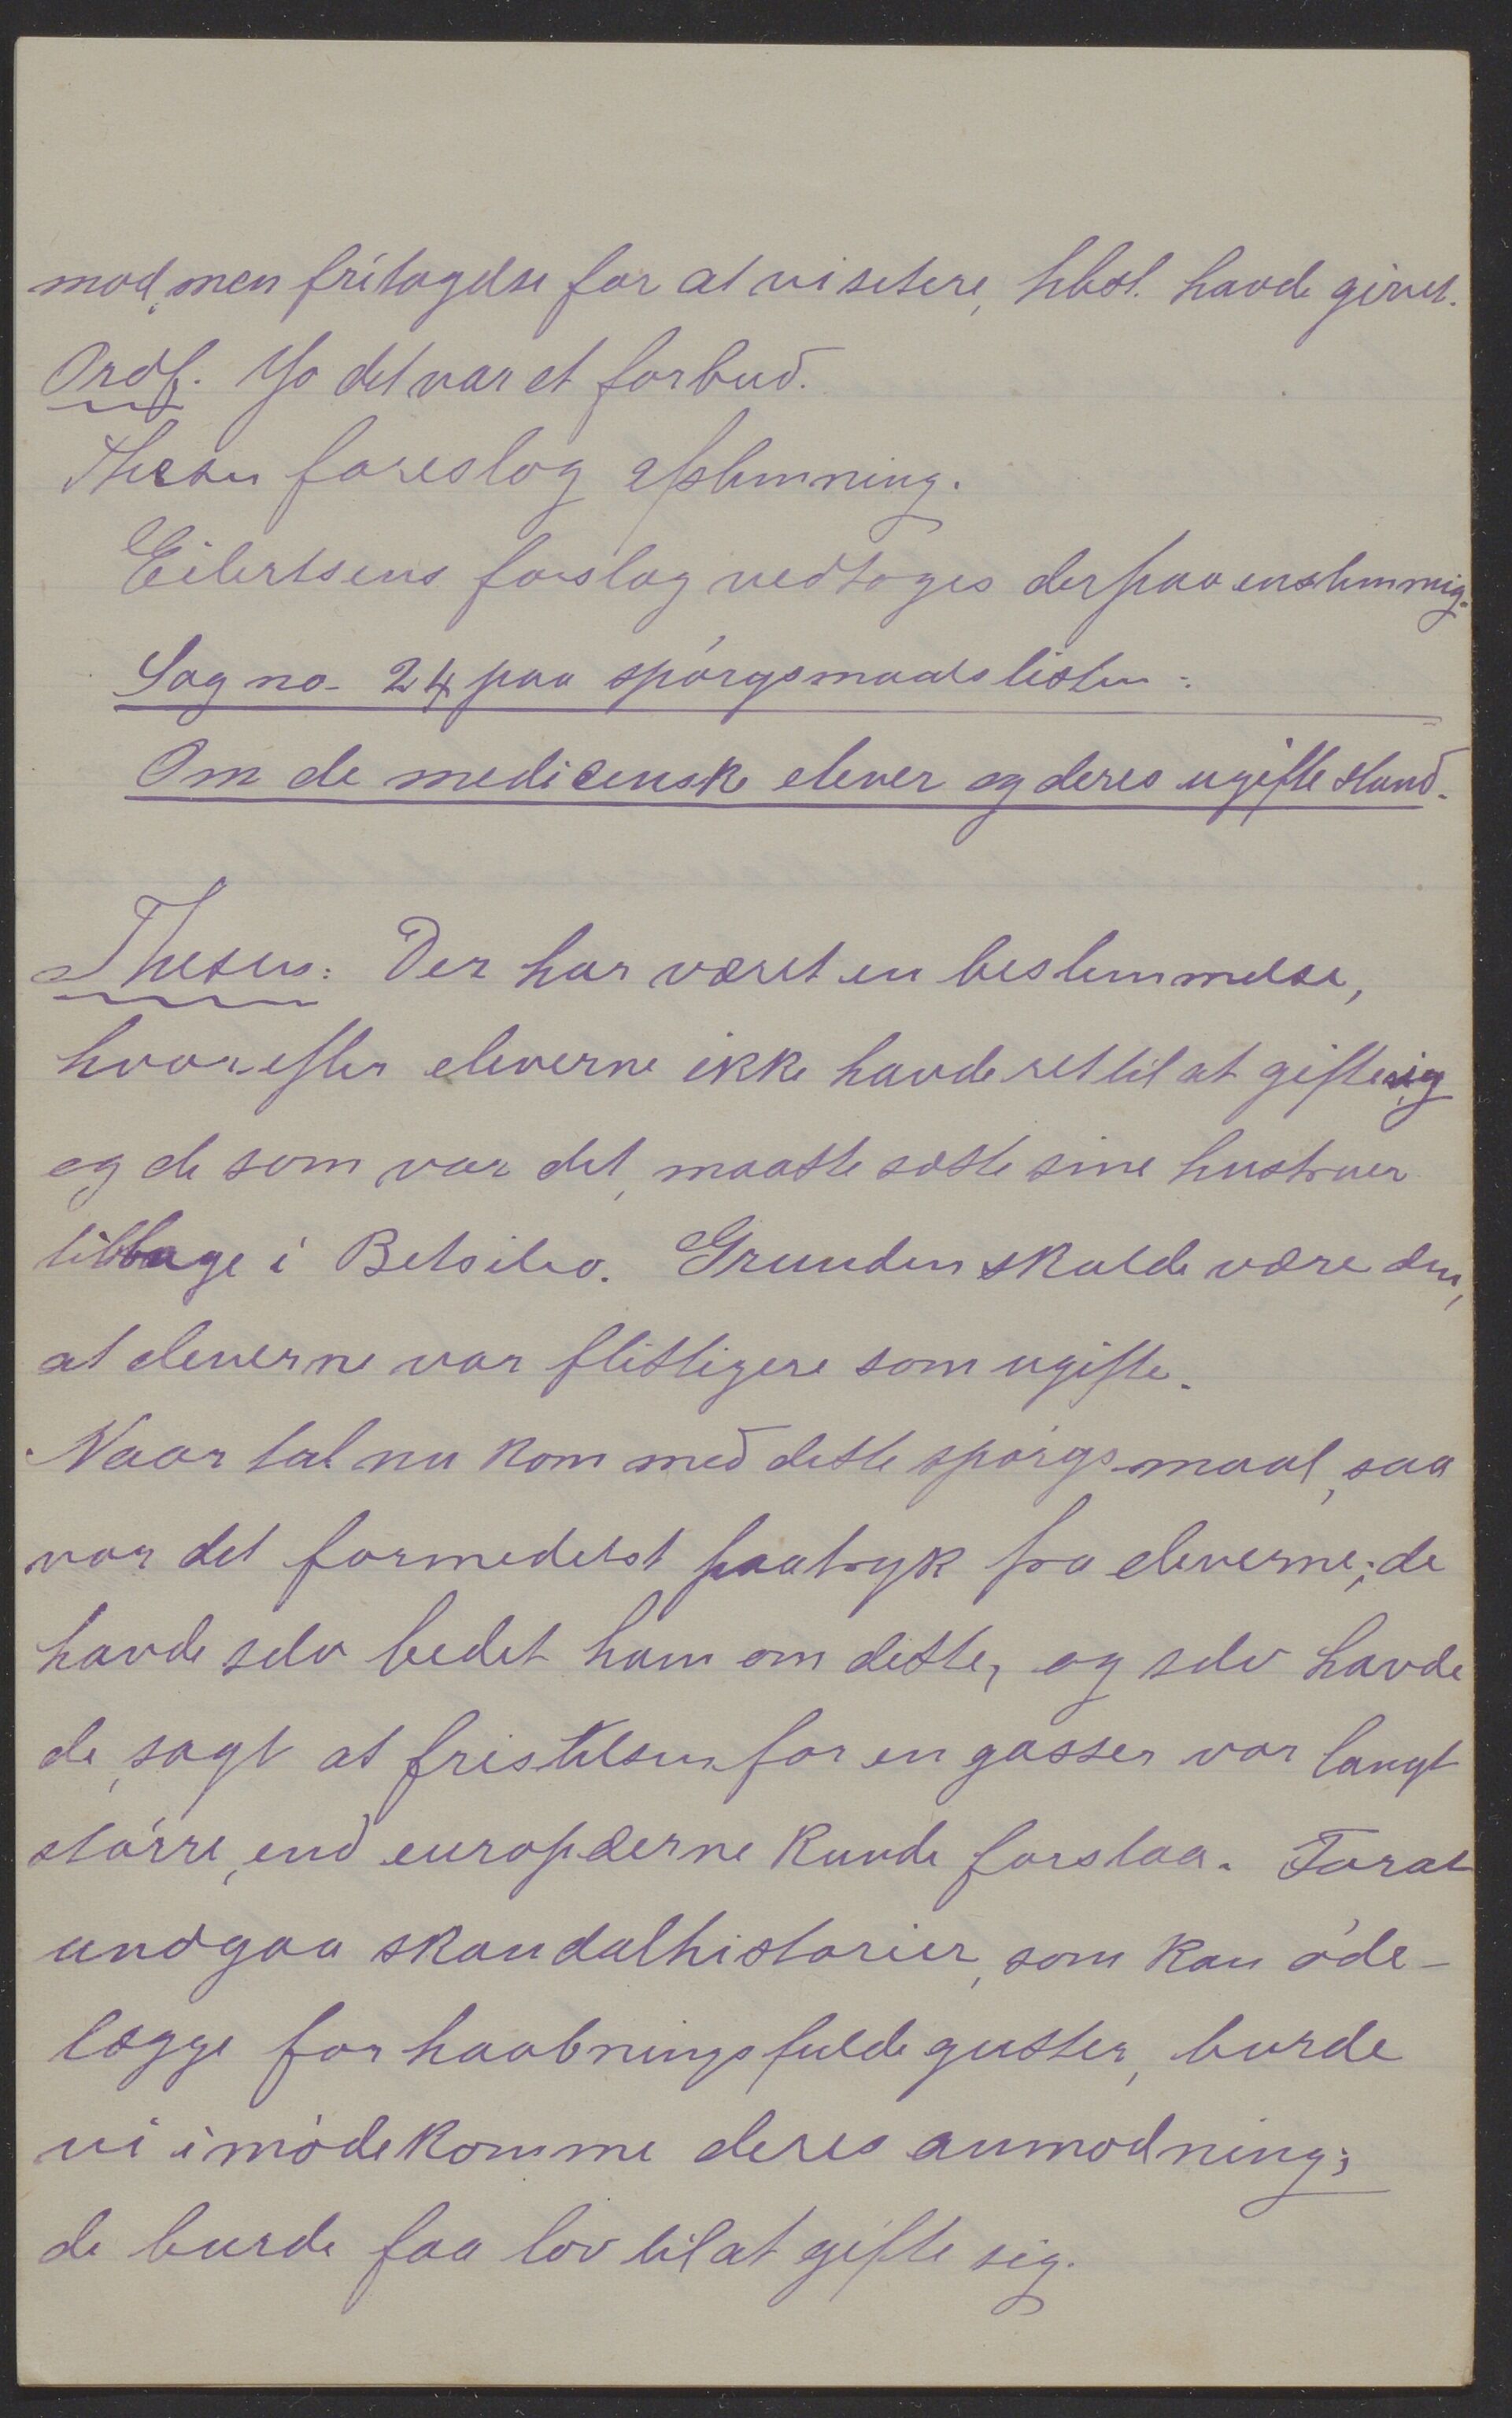 mod, men fritagelse for at visitere, hbst. havde givet.
Ordf. Jo det var et forbud.
Thesen foreslog afstemning.
Eilertsens forslag vedtoges derpaa enstemmig.
Sag no. 24 paa spórgsmaalslisten:
Om de medicinske elever og deres ugifte stand.
Thesen: Der har været en bestemmelse,
hvorefter eleverne ikke havde ret til at gifte sig
og de som var det, maatte sætte sine hustruer
tilbage i Betsileo. Grunden skulde være den,
at eleverne var flittigere som ugifte.
Naar tal. nu kom med dette spórgsmaal, saa
var det formedelst paatryk fra eleverne; de
havde selv bedet ham om dette, og selv havde
de sagt at fristelsen for en gasser var langt
stórre, end europæerne kunde forstaa. For at
undgaa skandalhistorier, som kan óde-
lægge forhaabningsfulde gutter, burde
vi imódekomme deres anmodning;
de burde faa lov til at gifte sig.